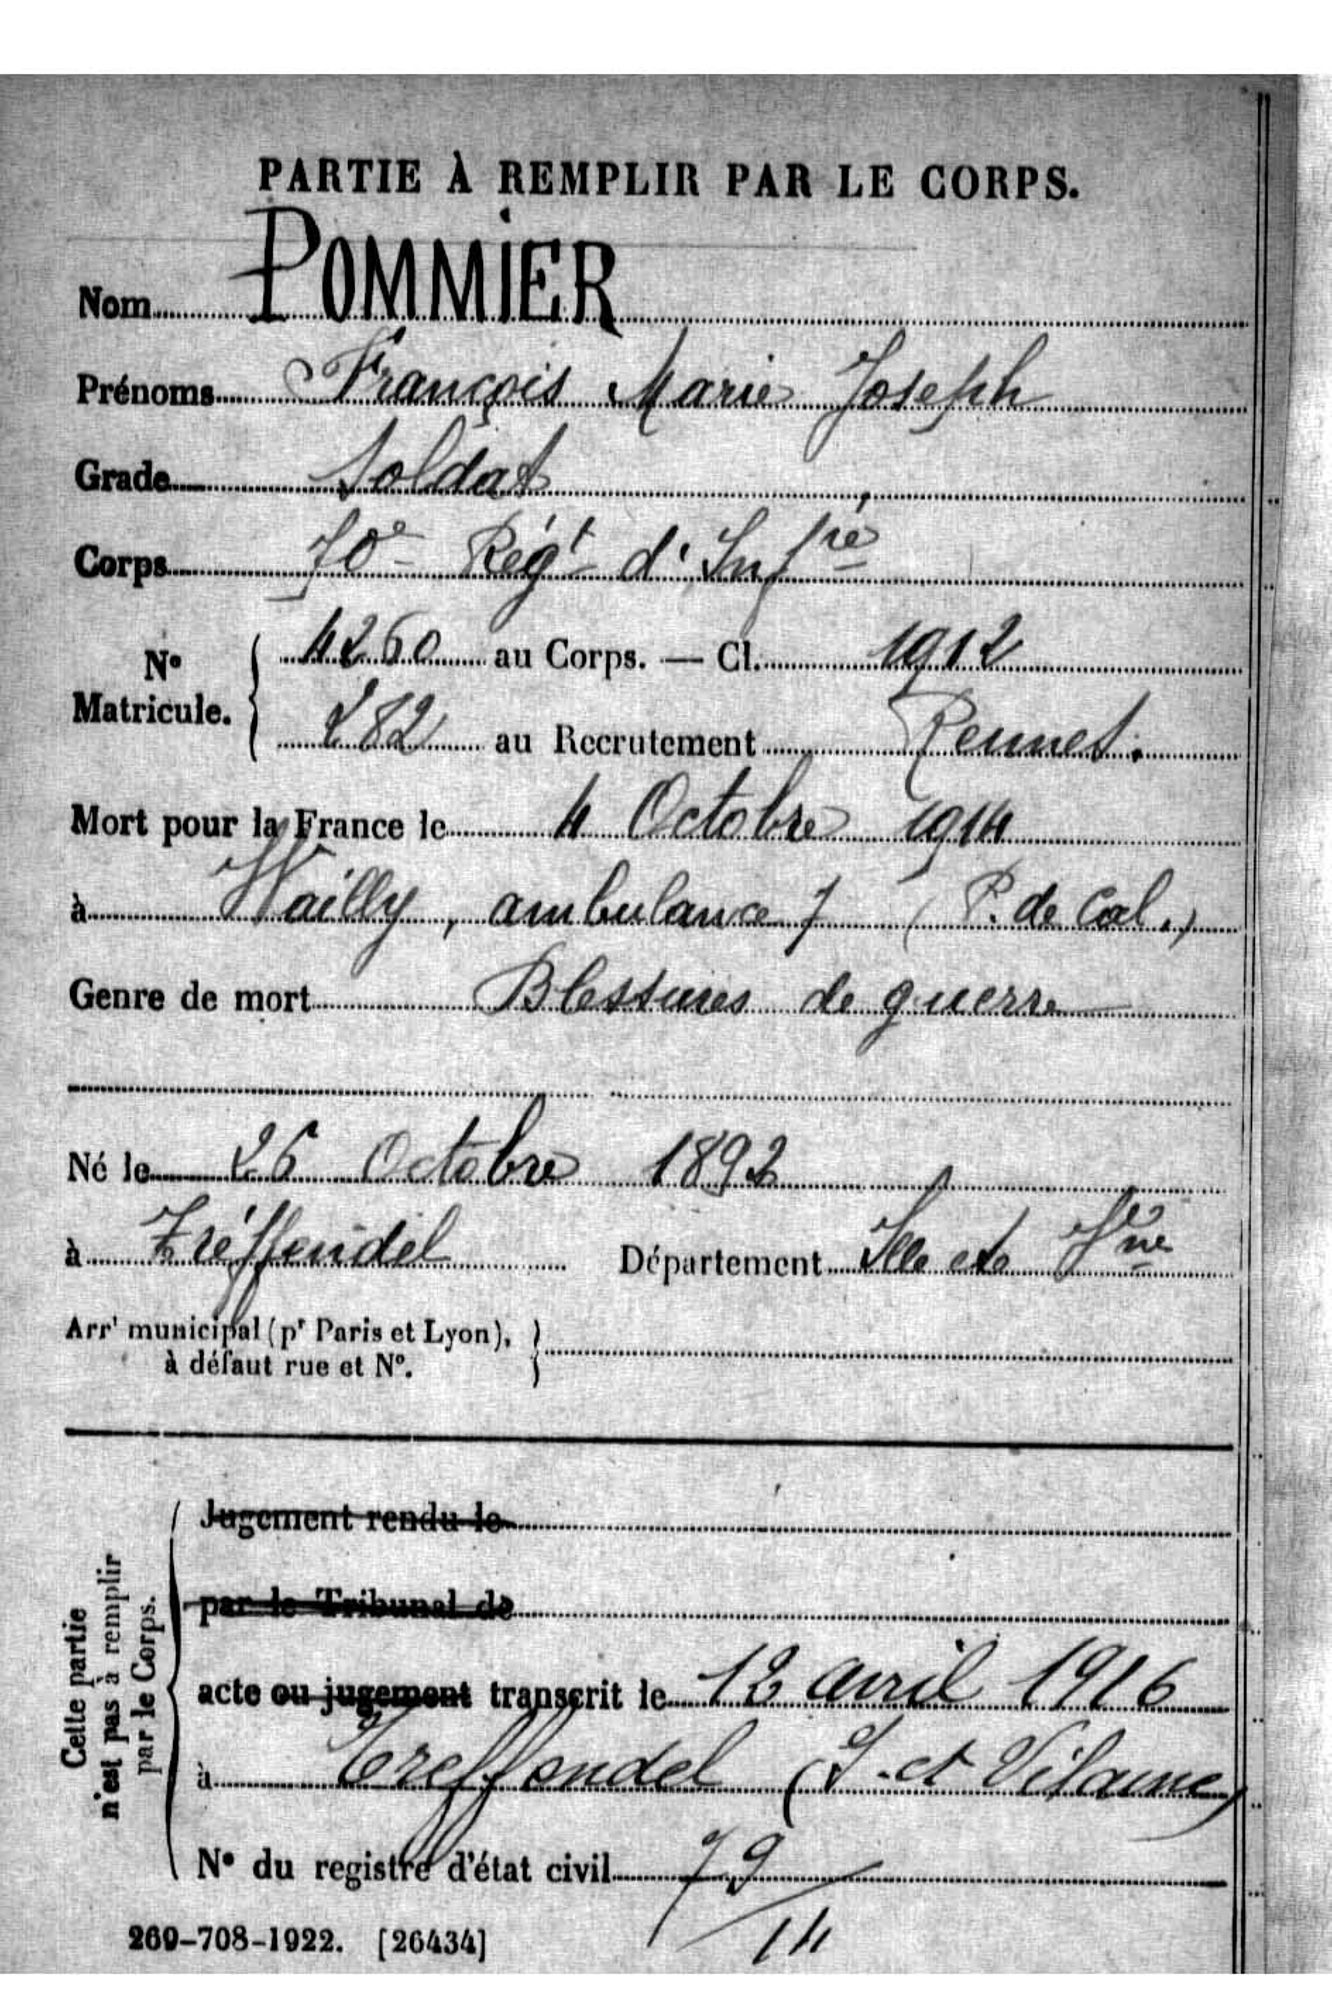 PARTIE À REMPLIR PAR LE CORPS.
Nom POMMIER
Prénoms François Marie Joseph
Grade Soldat
Corps 70e Régt d'Infrie
N° Matricule. 4260 au Corps. — Cl. 1912
282 au Recrutement Rennes.
Mort pour la France le 4 Octobre 1914
à Wailly, ambulance 7 (P. de Cal.)
Genre de mort Blessures de guerre
Né le 26 Octobre 1892
à Tréffendel Département Ille et Vne
Arrt municipal (pr Paris et Lyon),
à défaut rue et N°.
Cette partie
n'est pas à remplir
par le Corps.
Jugement rendu le
par le Tribunal de
acte ou jugement transcrit le 12 avril 1916
à Treffendel (I. et Vilaine)
N° du registre d'état civil 79/14
269-708-1922. [26434]